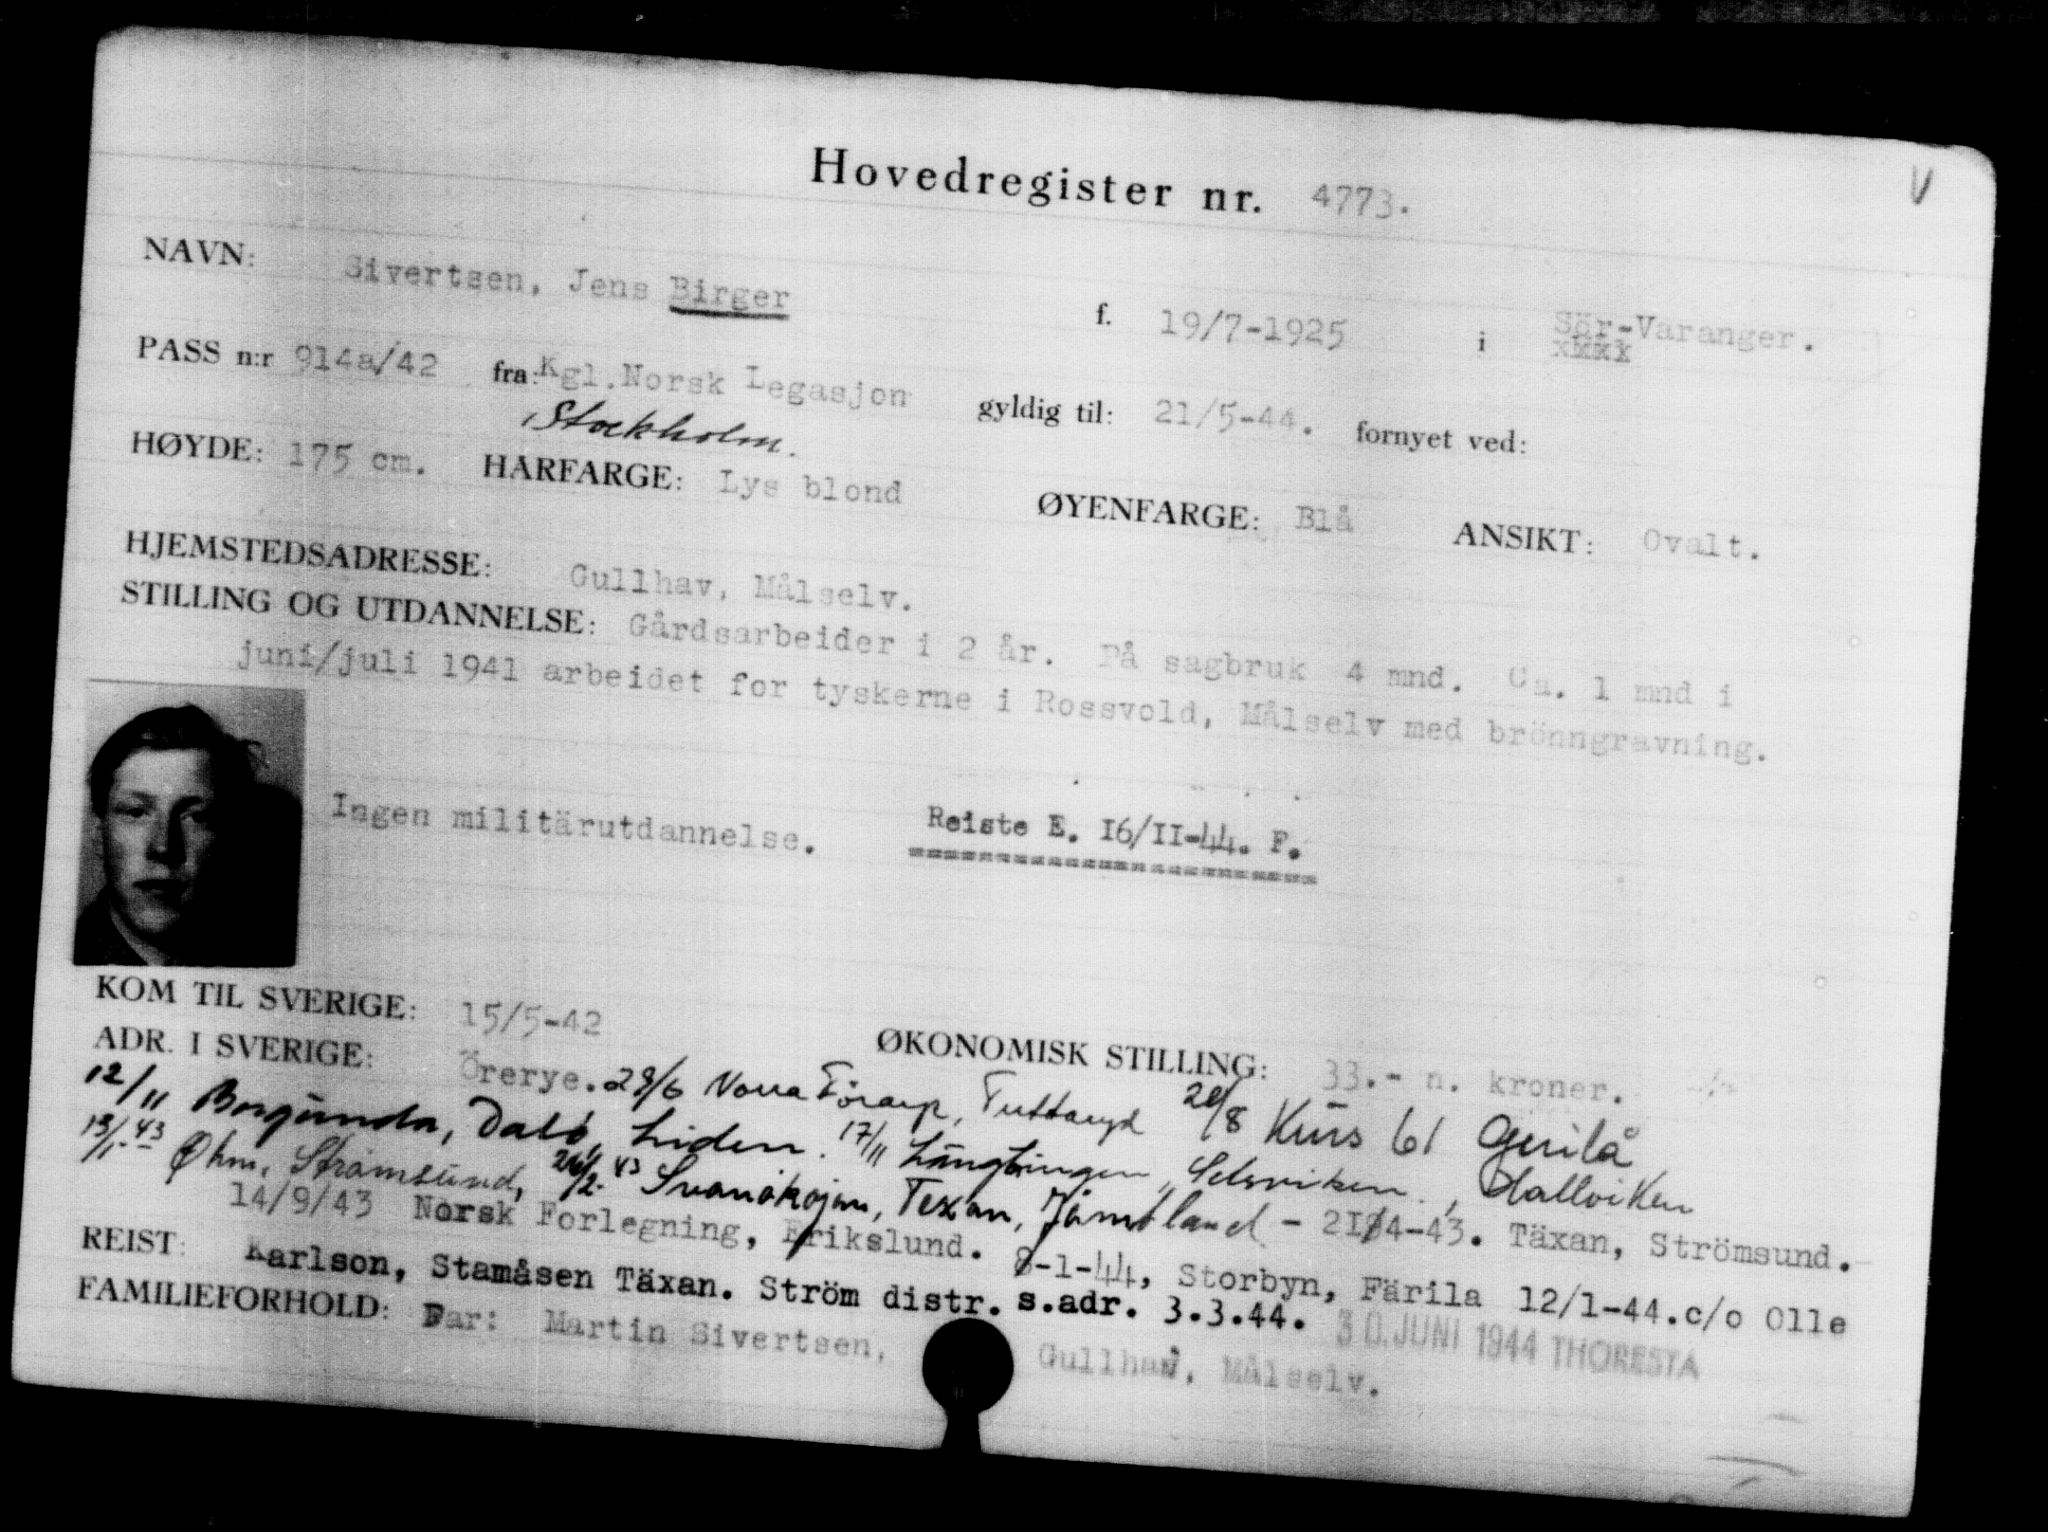 Hovedregister nr. 4773.
V
NAVN: Sivertsen, Jens Birger f. 19/7-1925 i Sör-Varanger.
xxxx
PASS n:r 914a/42 fra: Kgl. Norsk Legasjon gyldig til: 21/5-44. fornyet ved:
Stockholm.
HØYDE: 175 cm. HARFARGE: Lys blond ØYENFARGE: Blå ANSIKT: Ovalt.
HJEMSTEDSADRESSE: Gullhav, Målselv.
STILLING OG UTDANNELSE: Gårdsarbeider i 2 år. På sagbruk 4 mnd. Ca. 1 mnd i
juni/juli 1941 arbeidet for tyskerne i Rossvold, Målselv med brönngravning.
Ingen militärutdannelse. Reiste E. 16/11-44. F.
KOM TIL SVERIGE: 15/5-42 ØKONOMISK STILLING: 33.- n. kroner.
ADR. I SVERIGE: Örerye. 28/6 Norra Förarp, Tuttaryd 20/8 Kurs 61 Gerilå
12/11 Borgunda, Dalö, Liden. 17/11 Långbingen, Selsviken, Hallviken
13/1-43 Øhm, Strømsund, 26/2-43 Svanåkojan, Texan, Jämtland - 21/4-43. Täxan, Strömsund.-
14/9/43 Norsk Forlegning, Erikslund. 8-1-44, Storbyn, Färila 12/1-44. c/o Olle
REIST: Karlson, Stamåsen Täxan. Ström distr. s.adr. 3.3.44. 30. JUNI 1944 THORESTA
FAMILIEFORHOLD: Far: Martin Sivertsen, Gullhav, Målselv.